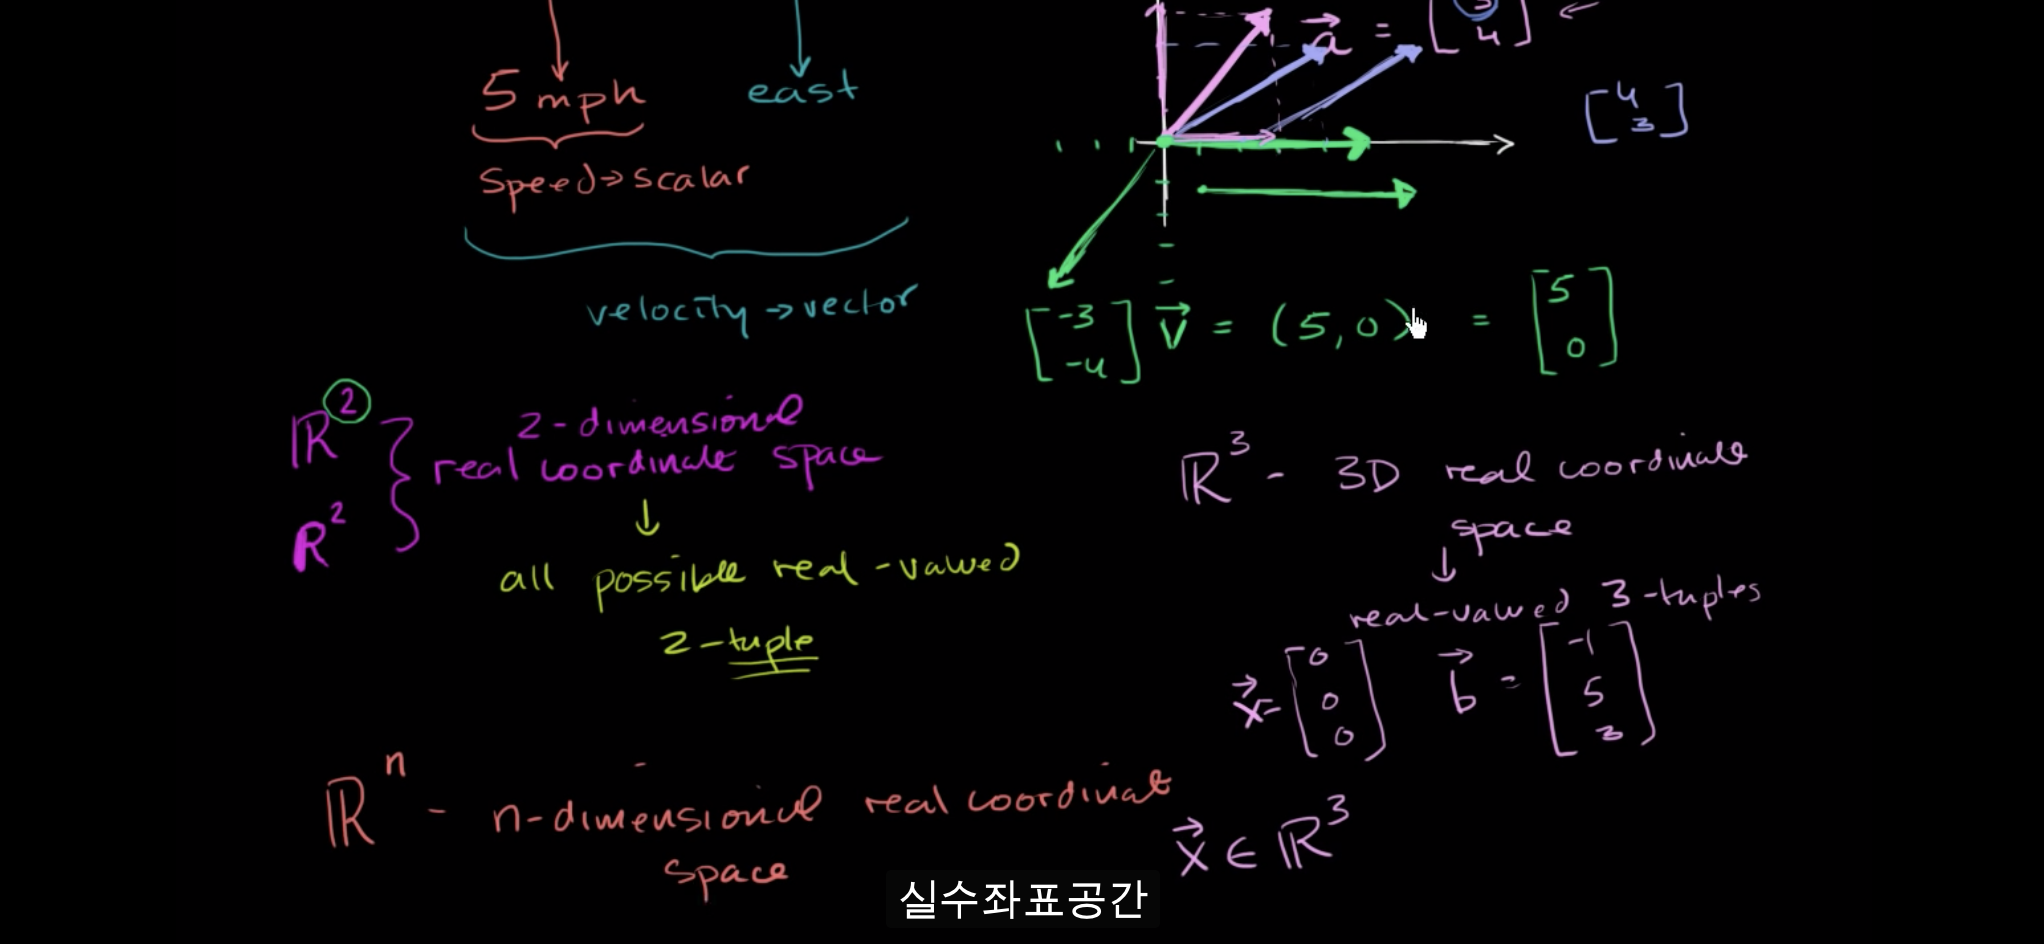 5 mph
east
speed → scalar
velocity → vector
a =
4
[4
3]
[-3
-4]
v = (5,0) = [5
0]
ℝ²
R²
2-dimensional
real coordinate space
↓
all possible real-valued
2-tuple
ℝ³ - 3D real coordinate
space
↓
real-valued 3-tuples
x = [0
0
0]
b = [-1
5
3]
ℝⁿ - n-dimensional real coordinate
space
x ∈ ℝ³
실수좌표공간